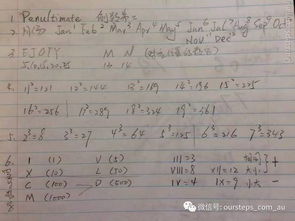 1. Penultimate 倒数第二
2. 月份 Jan¹ Feb² Mar³ Apr⁴ May⁵ Jun⁶ Jul⁷ Aug⁸ Sep⁹ Oct
Nov Dec
3. EJOTY M N
5,10,15,20,25 13 14
4. 11²=121 12²=144 13²=169 14²=196 15²=225
16²=256 17²=289 18²=324 19²=361
5. 2³=8 3³=27 4³=64 5³=125 6³=216 7³=343
6. I (1) V (5) III=3 +
X (10) L (50) VIII=8 XII=12 大小
C (100) D (500) IV=4 IX=9 小大 −
M (1000)
微信号: oursteps_com_au